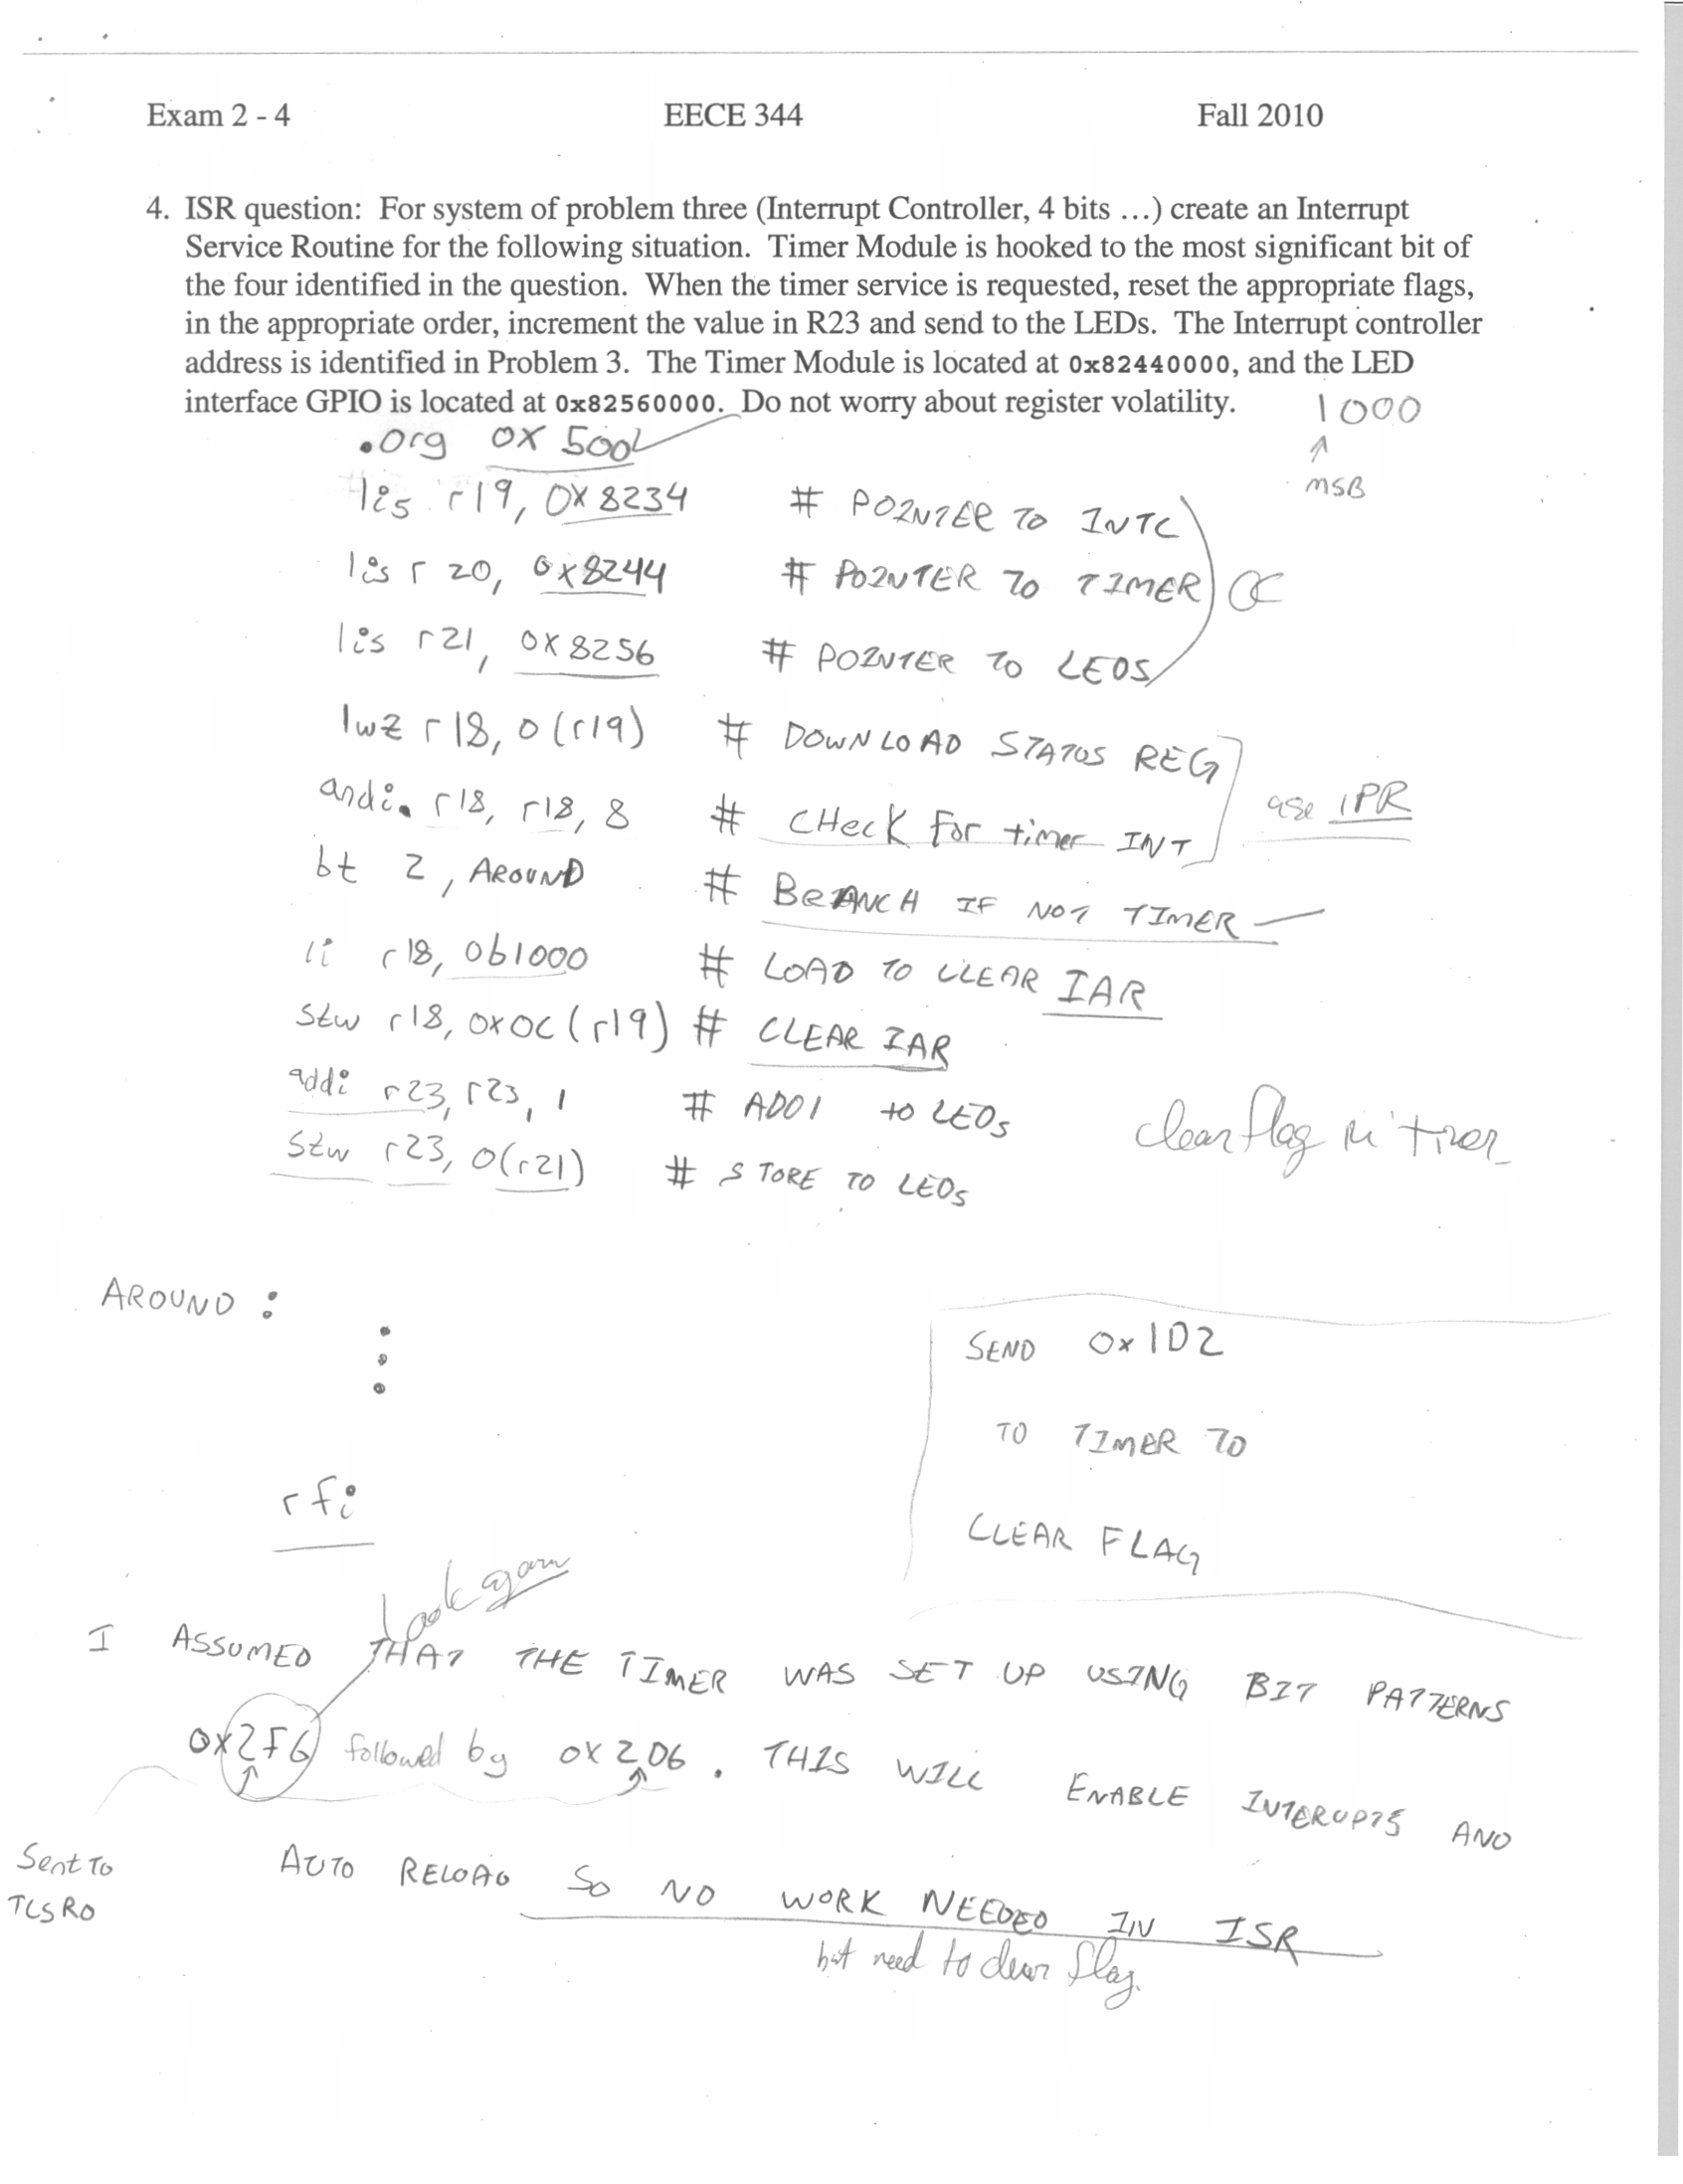 Exam 2 - 4 EECE 344 Fall 2010
4. ISR question: For system of problem three (Interrupt Controller, 4 bits …) create an Interrupt
Service Routine for the following situation. Timer Module is hooked to the most significant bit of
the four identified in the question. When the timer service is requested, reset the appropriate flags,
in the appropriate order, increment the value in R23 and send to the LEDs. The Interrupt controller
address is identified in Problem 3. The Timer Module is located at 0x82440000, and the LED
interface GPIO is located at 0x82560000. Do not worry about register volatility.
1000
↑
MSB
.org 0x500
lis r19, 0x8234 # POINTER TO INTC
lis r20, 0x8244 # POINTER TO TIMER
OK
lis r21, 0x8256 # POINTER TO LEDS
lwz r18, 0(r19) # DOWNLOAD STATUS REG
andi. r18, r18, 8 # CHECK For timer INT
use IPR
bt 2, AROUND # BRANCH IF NOT TIMER
li r18, 0b1000 # LOAD TO CLEAR IAR
stw r18, 0x0C(r19) # CLEAR IAR
addi r23, r23, 1 # ADD1 to LEDs
clear flag in timer
stw r23, 0(r21) # STORE TO LEDs
AROUND :
SEND 0x1D2
TO TIMER TO
CLEAR FLAG
rfi
Look again
I ASSUMED THAT THE TIMER WAS SET UP USING BIT PATTERNS
0x2F6 followed by 0x2D6. THIS WILL ENABLE INTERUPTS AND
Sent To
TCSR0
AUTO RELOAD SO NO WORK NEEDED IN ISR
but need to clear flag.